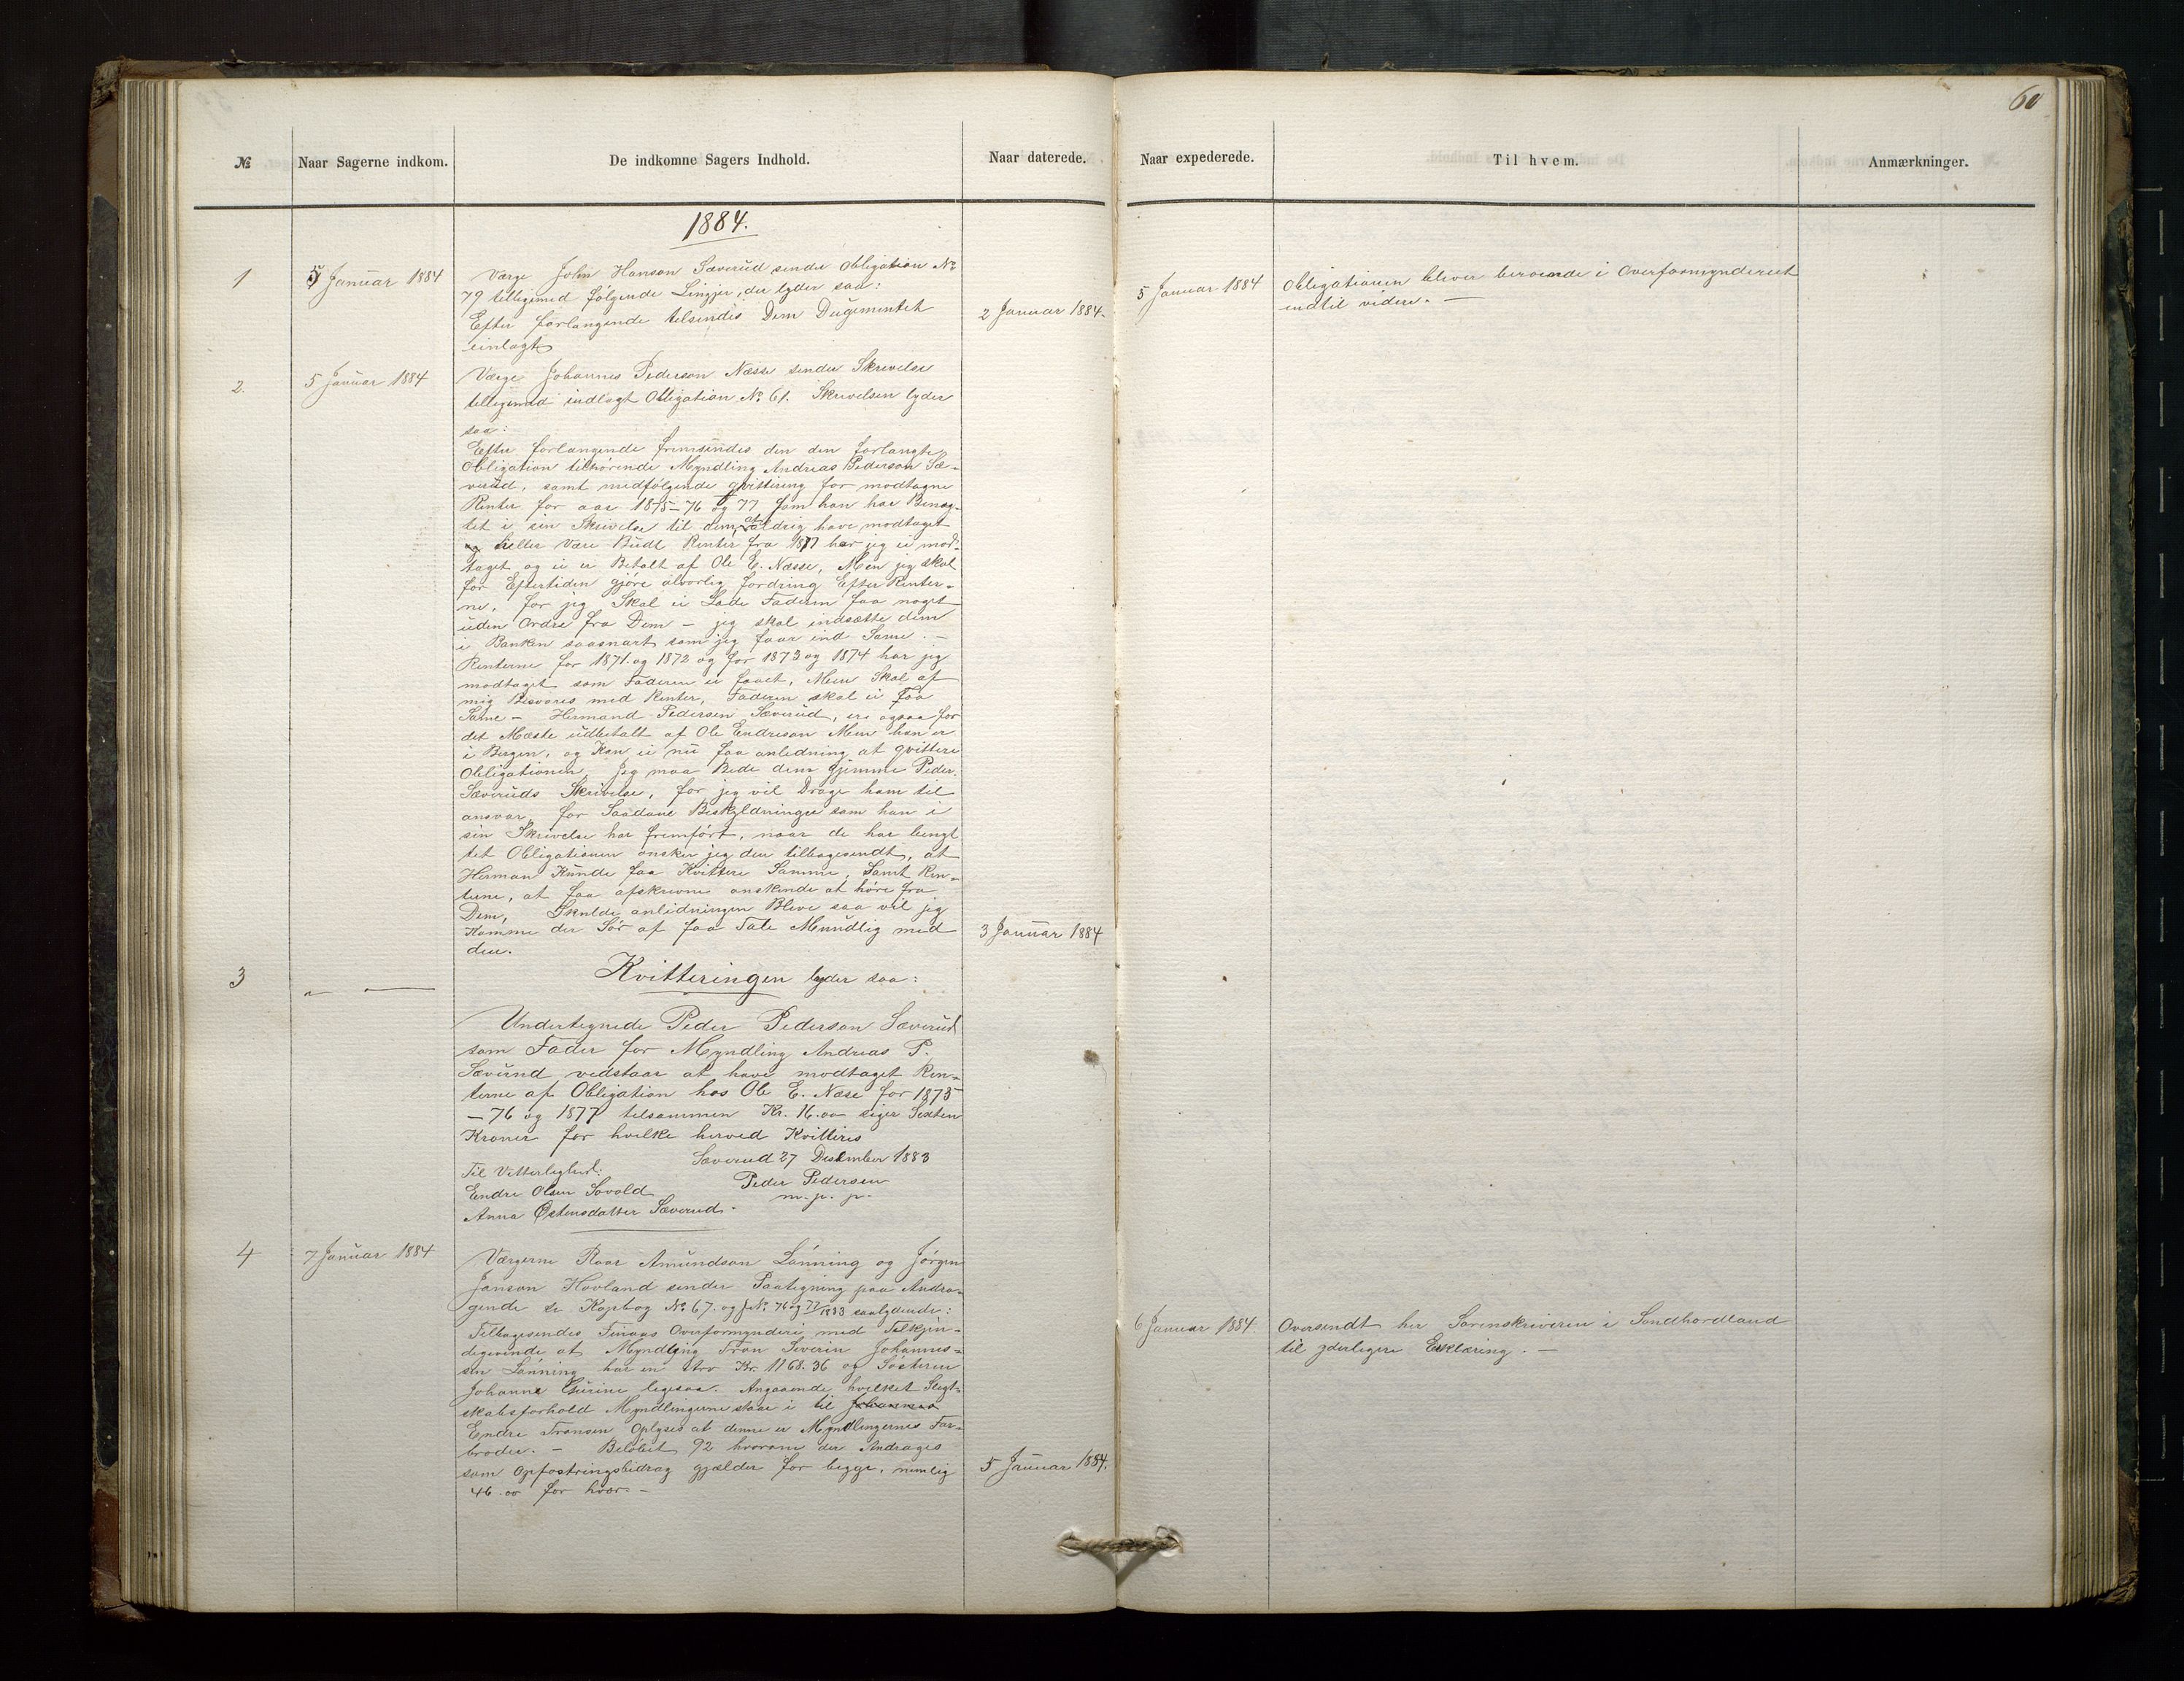 60
№ Naar Sagerne indkom. De indkomne Sagers Indhold. Naar daterede. Naar expederede. Til hvem. Anmærkninger.
1884.
1 5 Januar 1884
Værge John Hanson Sæverud sender Obligation №
79 tilligemed følgende Linjjer, der lyder saa:
Efter forlangende tilsendes Dem Dugementet
einlagt
2 Januar 1884.
5 Januar 1884
Obligationen bliver beroende i Overformynderiet
indtil videre. —
2. 5 Januar 1884
Værge Johannes Pederson Næsse sender Skrivelse
tilligemed indlagt Obligation № 61. Skrivelsen lyder
saa:
Efter forlangende fremsendes den den forlangte
Obligation tilhørende Myndling Andreas Pederson Sæ-
verud, samt medfølgende qvittering for modtagne
Renter for aar 1875-76 og 77 som han har Benæg-
tet i sin Skrivelse til dem, at aldrig have modtaget
heller være Budt Renter fra 1877 har jeg ei mod-
taget og ei er Betalt af Ole E. Næsse, Men jeg skal
for Eftertiden gjöre alvorlig fordring Efter Renter-
ne, for jeg Skal ei Lade Faderen faa noget
uden Ordre fra Dem — jeg skal indsætte dem
i Banken saasnart som jeg faar ind Same. —
Renterne for 1871. og 1872 og for 1873 og 1874 har jeg
modtaget som Faderen ei faaet, Men Skal af
mig Besvares med Renter, Faderen skal ei faa
Same — Hermand Pedersen Sæverud, ere ogsaa for
det Mæste udbetalt af Ole Endreson Men han er
i Bergen, og Kan ei nu faa anledning at qvittere
Obligationen, Jeg maa Bede dem Gjemme Peder
Sæveruds Skrivelse, for jeg vil Drage ham til
ansvar for Saadane Beskyldninger som han i
sin Skrivelse har fremfört, naar de har bengt
tet Obligationen ønsker jeg den tilbagesendt, at
Herman Kunde faa Kvittere Samme, Samt Ren-
terne, at faa afskrevne ønskende at höre fra
Dem, Skulde anledningen Blive saa vil jeg
Komme der Sör af faa Tale Mundlig med
den.
3 Januar 1884
3 " —
Kvitteringen lyder saa:
Undertegnede Peder Pederson Sæverud
som Fader for Myndling Andreas P.
Sæverud vedstaar at have modtaget Ren-
terne af Obligation hos Ole E. Næse for 1875
— 76 og 1877 tilsammen Kr. 16.00 siger Sexten
Kroner for hvilke herved Kvitteres
Sæverud 27 Desember 1883
Til Vitterlighed: Peder Pedersen
Endre Olsen Sovold m. p. p.
Anna Østensdatter Sæverud.
4 7 Januar 1884
Værgerne Roar Amundson Lönning og Jörgen
Janson Hovland sender Paategning paa Andra-
gende se Kopbog № 67. og J№ 76 og 77/1883 saalydende:
Tilbagesendes Finaas Overformynderi med Tilkjen-
degivende at Myndling Tron Severin Johannes-
sen Lönning har en Arv Kr. 1168.36 og Søsteren
Johanne Thurine ligesaa. Angaaende hvilket Slegt-
skabsforhold Myndlingerne staar i til Johannes
Endre Tronsen Oplyses at denne er Myndlingernes Far-
broder. — Belöbet 92 hvorom der Andrages
som Opfostringsbidrag gjælder for begge, nemlig
46.00 for hver. —
5 Januar 1884.
6 Januar 1884.
Oversendt her Sorenskriveren i Sondhordland
til yderligere Erklæring. —